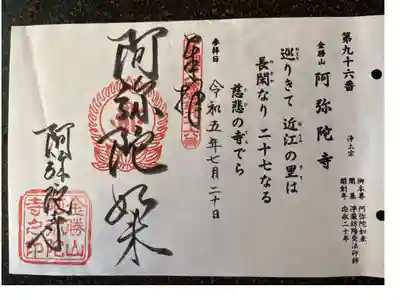 第九十六番
金勝山 阿弥陀寺 浄土宗
御本尊 阿弥陀如来
開基 浄厳坊隆堯法印師
開創年 応永二十年
巡りきて 近江の里は
長閑なり 二十七なる
慈悲の寺でら
参拝日 令和五年七月二十日
奉拝
阿弥陀如来
阿弥陀寺
金勝山